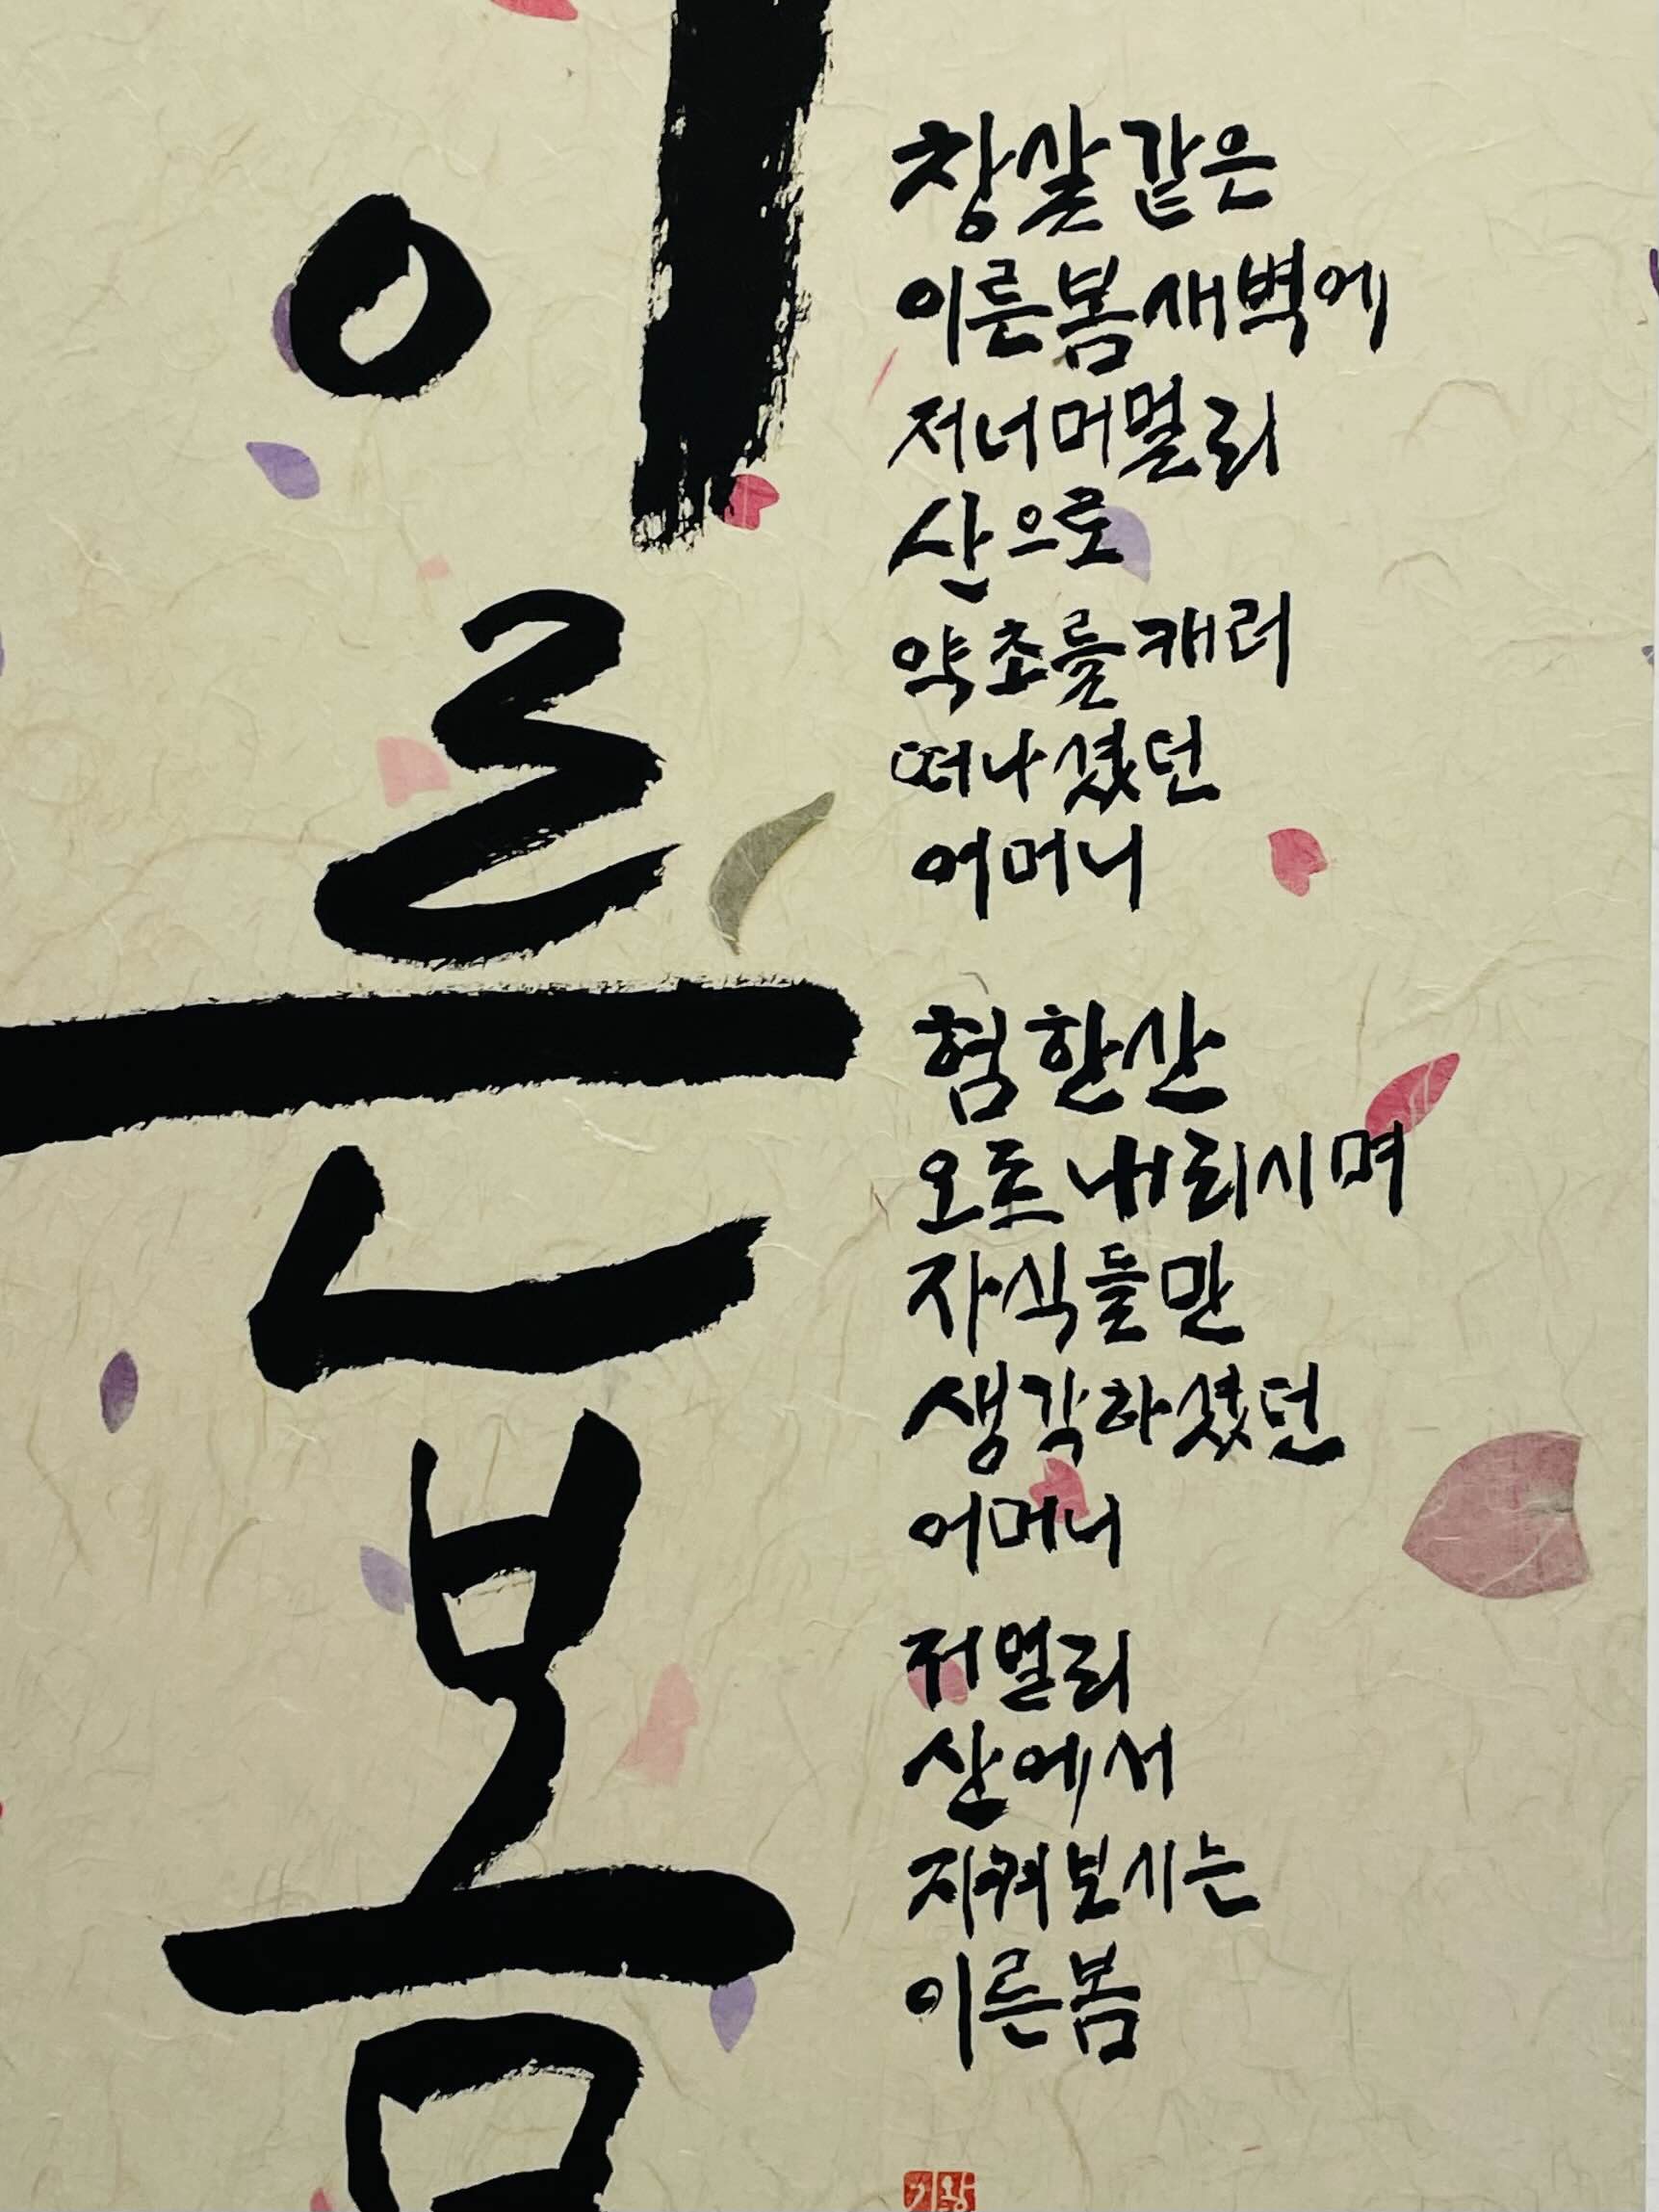 이른봄
창살 같은
이른봄 새벽에
저너머 멀리
산으로
약초를 캐러
떠나셨던
어머니
험한 산
오르내리시며
자식들만
생각하셨던
어머니
저 멀리
산에서
지켜보시는
이른봄